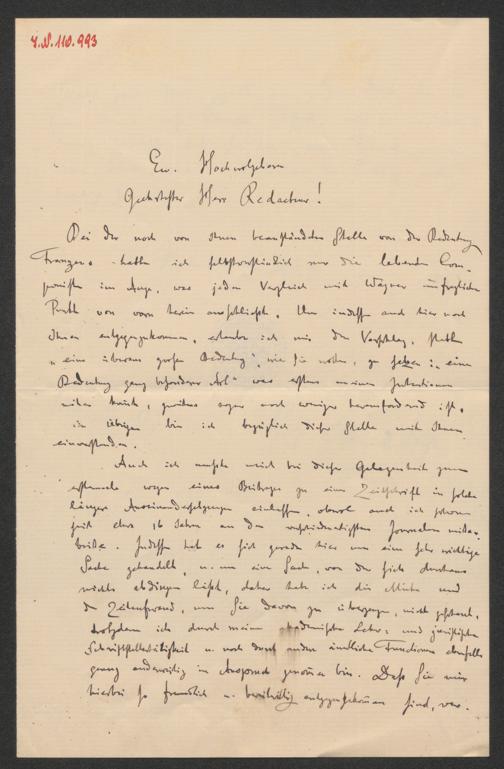 J.N. 110.993
Ew. Hochwolgeborn
Geehrtester Herr Redacteur!
Bei der noch von Ihnen beanständeten Stelle von der Bedeutung
Franzens hatte ich selbstverständlich nur die lebenden Com-
ponisten im Auge, was jeden Vergleich mit Wagner
von vorn herein ausschließt. Um indessen auch hier noch
Ihnen entgegenzukommen, erlaube ich mir den Vorschlag, statt
"eine überaus große Bedeutung", wie Sie wollen, zu setzen: "eine
Bedeutung ganz besonderer Art" was erstens meinen Intentionen
zweitens sogar noch weniger herausfordernd ist.
im übrigen bin ich bezüglich dieser Stelle mit Ihnen
einverstanden.
Auch ich mußte mich bei dieser Gelegenheit zum
erstenmale wegen eines Beitrages zu einer Zeitschrift in solche
längere Auseinandersetzungen einlassen, obwol auch ich schon
seit etwa 16 Jahren an den verschiedenartigsten Journalen mitar-
beite. Indessen hat es sich gerade hier um eine sehr wichtige
Sache gehandelt, u. um eine Sache, von der sich durchaus
nichts abdingen läßt, daher habe ich die Mühe und
den Zeitaufwand, um Sie davon zu überzeugen, nicht gescheut,
trotzdem ich durch meine akademische Lehr- und
Schriftstellerthätigkeit u. noch durch andere ämtliche Functionen ebenfalls
ganz anderweitig in Anspruch genommen bin. Daß Sie mir
hierbei so freundlich u. bereitwillig entgegengekommen sind, ver-